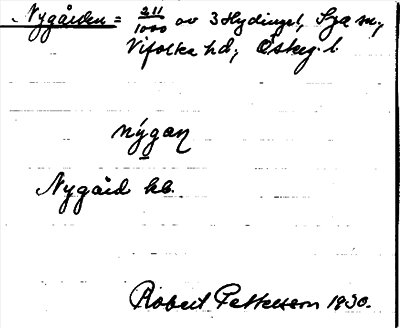 Nygården = 211/1000 av 3 Hydinge, Sya sn,
Vifolka hd, Östeg. l.
nýgan
Nygård kb.
Robert Pettersson 1930.